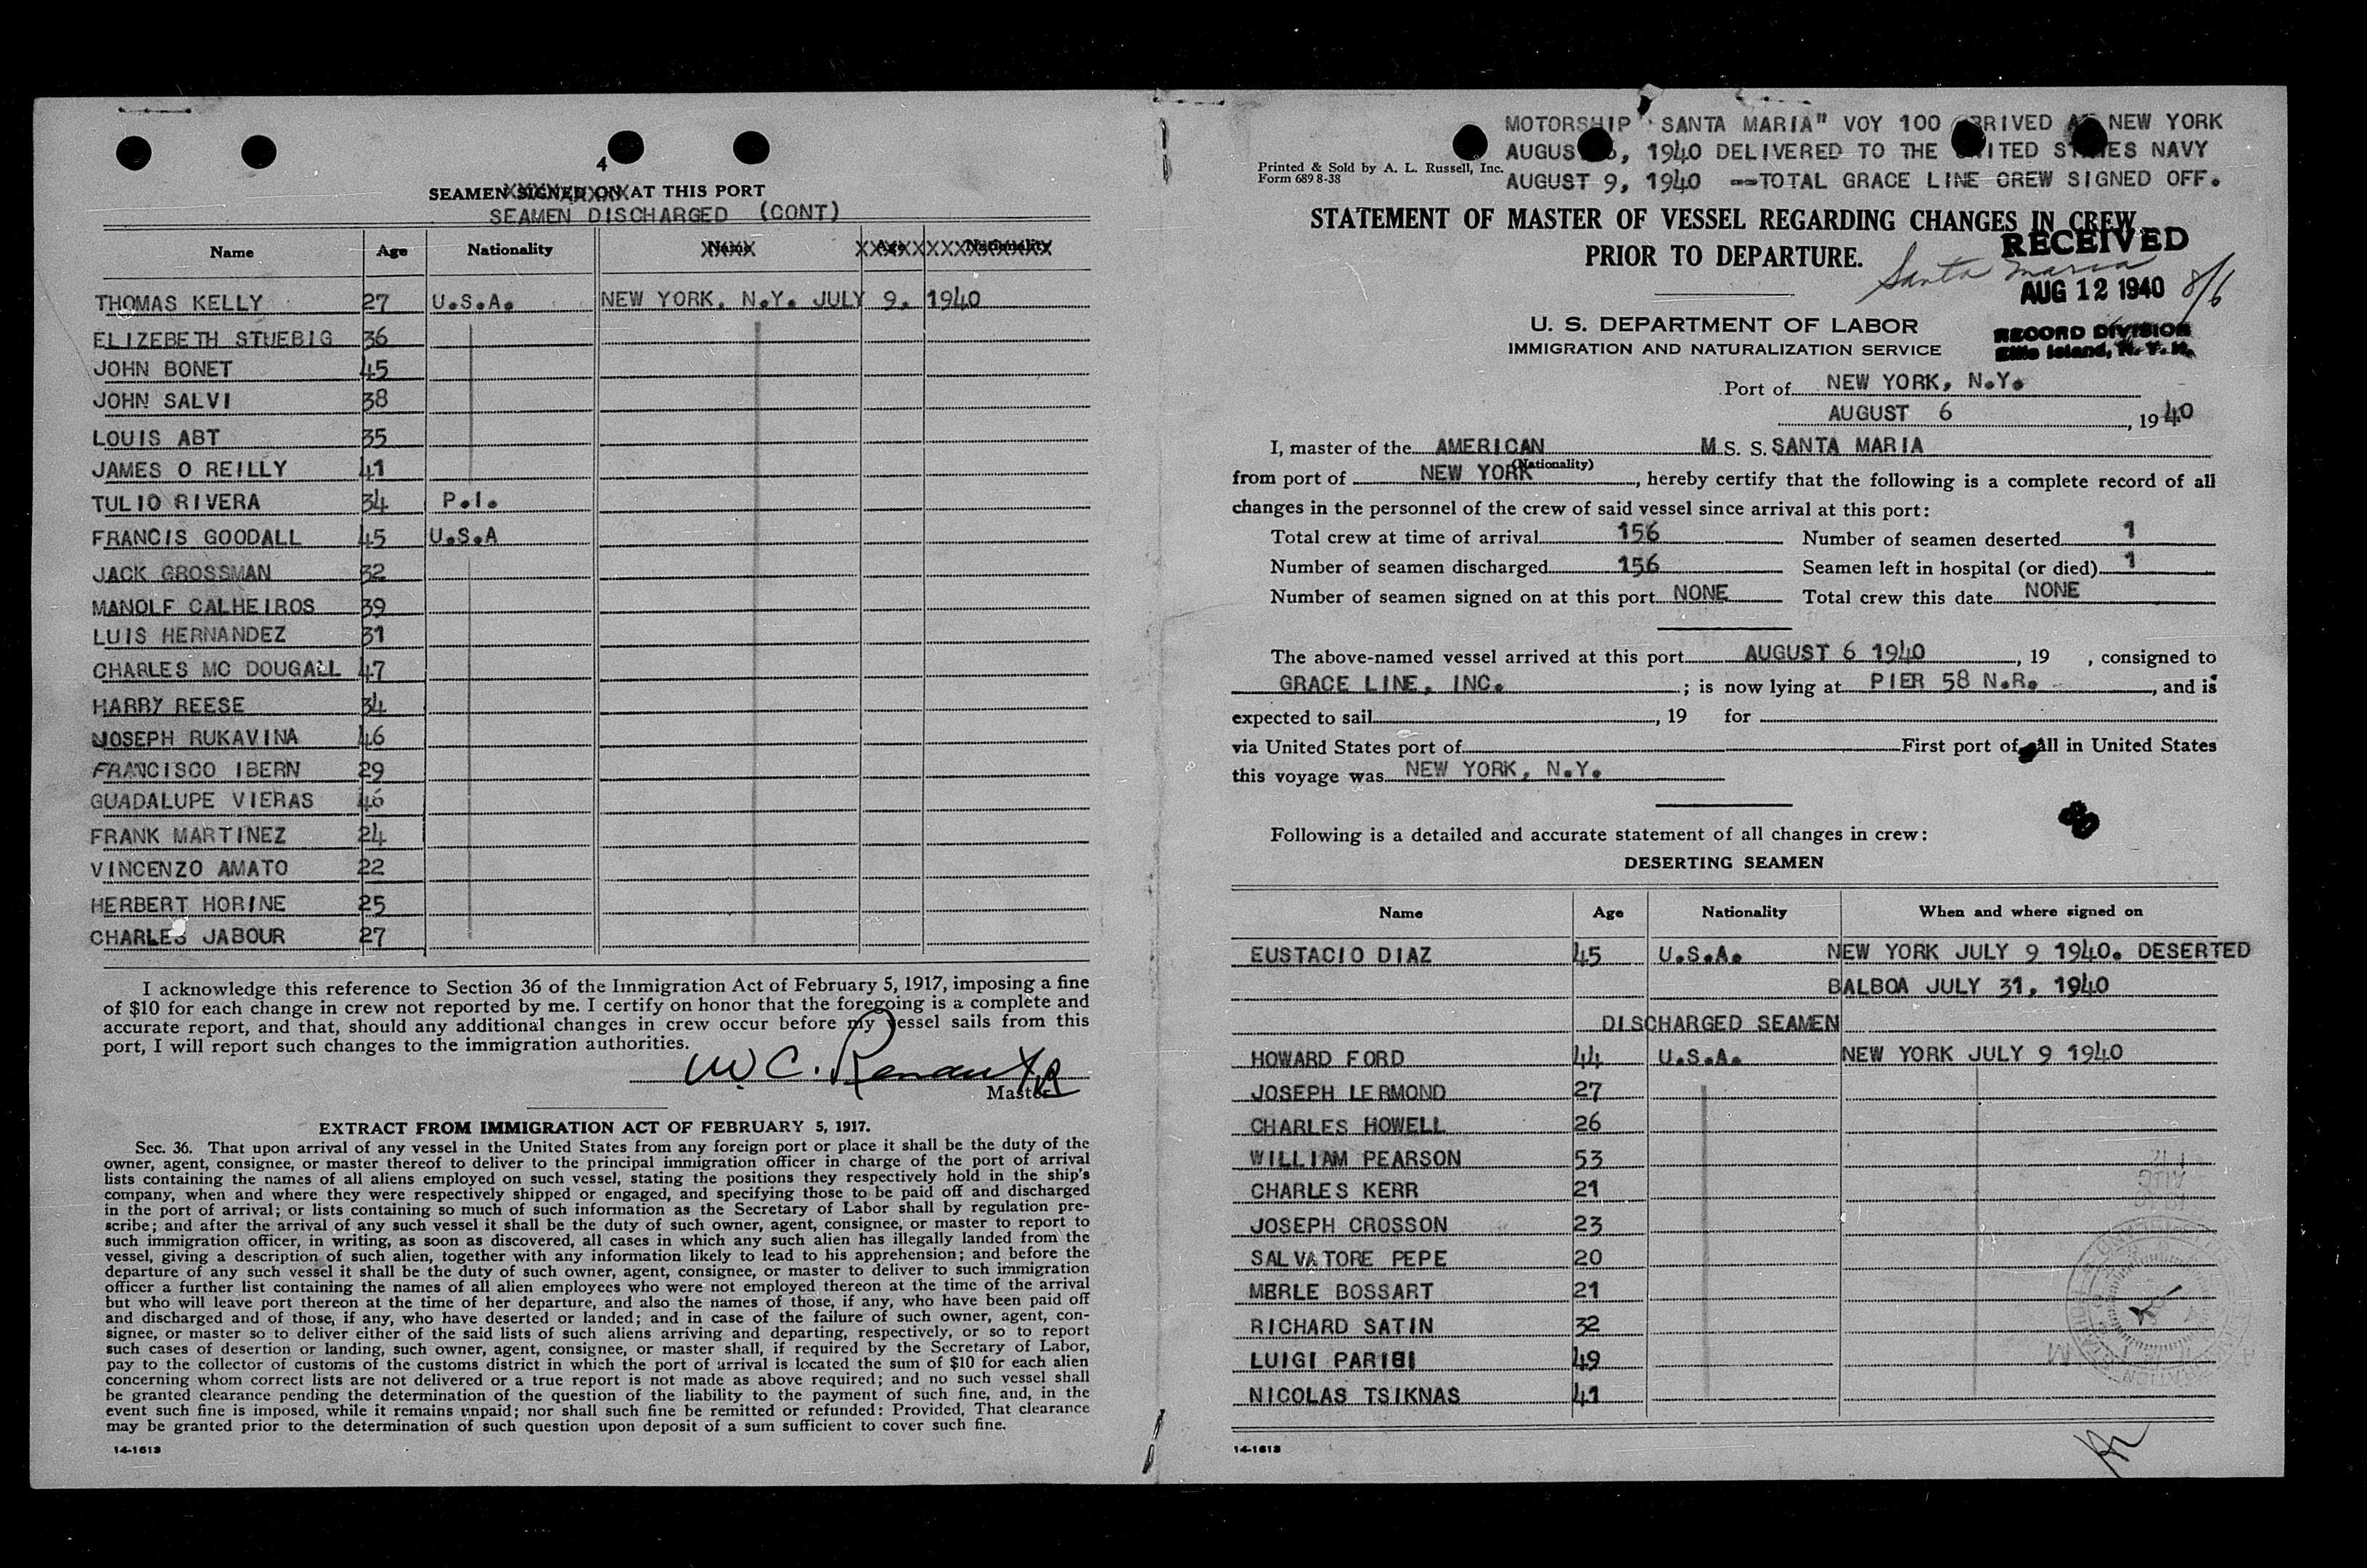 4
SEAMEN SIGNED ON AT THIS PORT
SEAMEN DISCHARGED (CONT)
Name Age Nationality Name Age Nationality
THOMAS KELLY 27 U.S.A. NEW YORK, N.Y. JULY 9, 1940
ELIZEBETH STUEBIG 36
JOHN BONET 45
JOHN SALVI 38
LOUIS ABT 35
JAMES O REILLY 41
TULIO RIVERA 34 P.I.
FRANCIS GOODALL 45 U.S.A
JACK GROSSMAN 32
MANOLF CALHEIROS 39
LUIS HERNANDEZ 31
CHARLES MC DOUGALL 47
HARRY REESE 34
JOSEPH RUKAVINA 46
FRANCISCO IBERN 29
GUADALUPE VIERAS 46
FRANK MARTINEZ 24
VINCENZO AMATO 22
HERBERT HORINE 25
CHARLES JABOUR 27
I acknowledge this reference to Section 36 of the Immigration Act of February 5, 1917, imposing a fine
of $10 for each change in crew not reported by me. I certify on honor that the foregoing is a complete and
accurate report, and that, should any additional changes in crew occur before my vessel sails from this
port, I will report such changes to the immigration authorities.
W C.
Master
EXTRACT FROM IMMIGRATION ACT OF FEBRUARY 5, 1917.
Sec. 36. That upon arrival of any vessel in the United States from any foreign port or place it shall be the duty of the
owner, agent, consignee, or master thereof to deliver to the principal immigration officer in charge of the port of arrival
lists containing the names of all aliens employed on such vessel, stating the positions they respectively hold in the ship's
company, when and where they were respectively shipped or engaged, and specifying those to be paid off and discharged
in the port of arrival; or lists containing so much of such information as the Secretary of Labor shall by regulation pre-
scribe; and after the arrival of any such vessel it shall be the duty of such owner, agent, consignee, or master to report to
such immigration officer, in writing, as soon as discovered, all cases in which any such alien has illegally landed from the
vessel, giving a description of such alien, together with any information likely to lead to his apprehension; and before the
departure of any such vessel it shall be the duty of such owner, agent, consignee, or master to deliver to such immigration
officer a further list containing the names of all alien employees who were not employed thereon at the time of the arrival
but who will leave port thereon at the time of her departure, and also the names of those, if any, who have been paid off
and discharged and of those, if any, who have deserted or landed; and in case of the failure of such owner, agent, con-
signee, or master so to deliver either of the said lists of such aliens arriving and departing, respectively, or so to report
such cases of desertion or landing, such owner, agent, consignee, or master shall, if required by the Secretary of Labor,
pay to the collector of customs of the customs district in which the port of arrival is located the sum of $10 for each alien
concerning whom correct lists are not delivered or a true report is not made as above required; and no such vessel shall
be granted clearance pending the determination of the question of the liability to the payment of such fine, and, in the
event such fine is imposed, while it remains unpaid; nor shall such fine be remitted or refunded: Provided, That clearance
may be granted prior to the determination of such question upon deposit of a sum sufficient to cover such fine.
14-1613
MOTORSHIP "SANTA MARIA" VOY 100 ARRIVED AT NEW YORK
AUGUST 6, 1940 DELIVERED TO THE UNITED STATES NAVY
AUGUST 9, 1940 --TOTAL GRACE LINE CREW SIGNED OFF.
Printed & Sold by A. L. Russell, Inc.
Form 689 8-38
STATEMENT OF MASTER OF VESSEL REGARDING CHANGES IN CREW
PRIOR TO DEPARTURE.
RECEIVED
Santa Maria 8/6
AUG 12 1940
RECORD DIVISION
Ellis Island, N. Y. H.
U. S. DEPARTMENT OF LABOR
IMMIGRATION AND NATURALIZATION SERVICE
Port of NEW YORK, N.Y.
AUGUST 6, 1940
I, master of the AMERICAN M S. S. SANTA MARIA
(Nationality)
from port of NEW YORK, hereby certify that the following is a complete record of all
changes in the personnel of the crew of said vessel since arrival at this port:
Total crew at time of arrival 156 Number of seamen deserted 1
Number of seamen discharged 156 Seamen left in hospital (or died) 1
Number of seamen signed on at this port NONE Total crew this date NONE
The above-named vessel arrived at this port AUGUST 6 1940, 19 , consigned to
GRACE LINE, INC. ; is now lying at PIER 58 N.R. , and is
expected to sail , 19 for
via United States port of First port of call in United States
this voyage was NEW YORK, N.Y.
Following is a detailed and accurate statement of all changes in crew:
DESERTING SEAMEN
Name Age Nationality When and where signed on
EUSTACIO DIAZ 45 U.S.A. NEW YORK JULY 9 1940. DESERTED
BALBOA JULY 31, 1940
DISCHARGED SEAMEN
HOWARD FORD 44 U.S.A. NEW YORK JULY 9 1940
JOSEPH LERMOND 27
CHARLES HOWELL 26
WILLIAM PEARSON 53
CHARLES KERR 21
JOSEPH CROSSON 23
SALVATORE PEPE 20
MERLE BOSSART 21
RICHARD SATIN 32
LUIGI PARISI 49
NICOLAS TSIKNAS 41
14-1613